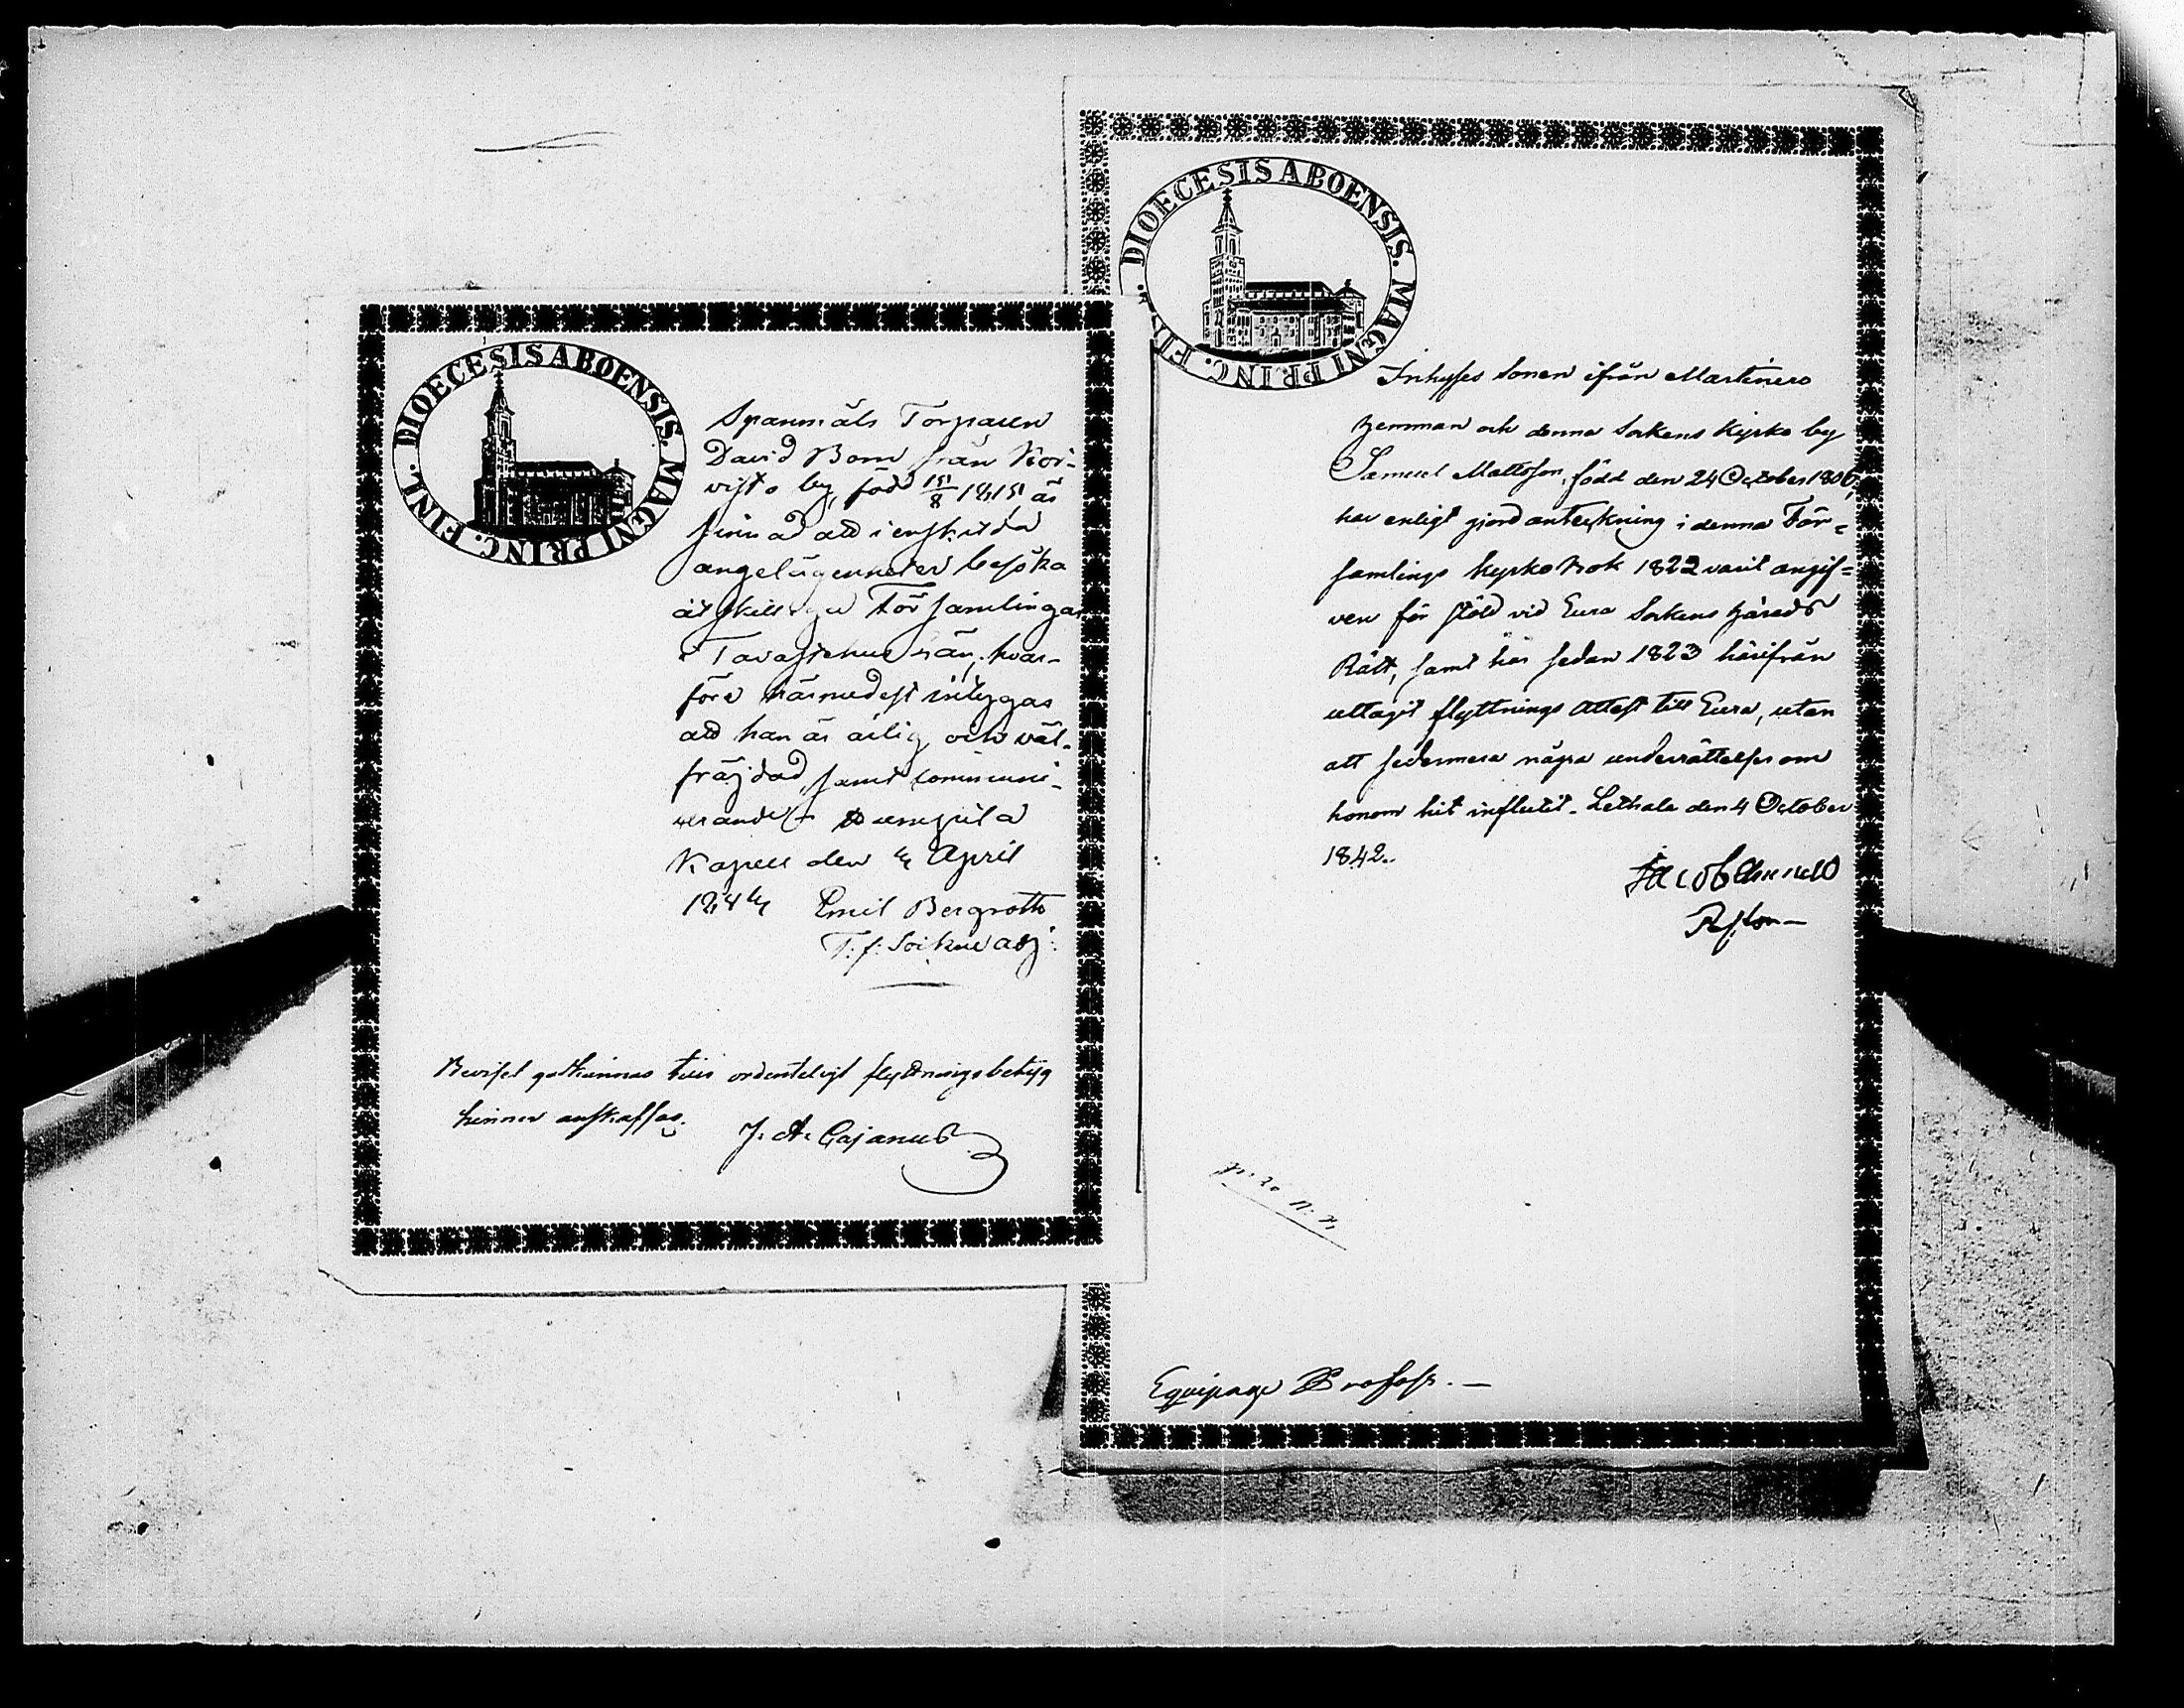 DIOECESIS ABOENSIS. MAGNI PRINC. FINL.
Spanmåls Torparen
David Bom från Koi-
visto by, född 15/8 1815 är
sinnad att i enskilda
angelägenheter besöka
åtskillige Församlingar
i Tavastehus län, hvar-
före härmedelst intygas
att han är ärlig och väl-
fräjdad, samt communi-
cerande
Kapell den 4 April
1844 Emil Bergroth
T: f: Sockne adj:
Beviset godkännes tills ordenteligt flyttningsbetyg
hinner anskaffas.
J. A. Cajanus
DIOECESIS ABOENSIS. MAGNI PRINC. FI
Inhyses Sonen ifrån Martinero
hemman och denna Sokens Kyrko by
Samuel Mattsson, född den 24 October 1806,
har enligt gjord anteckning i denna För-
samlings Kyrko Bok 1822 varit angif-
ven för stöld vid Eura Sokens Härads
Rätt, samt har sedan 1823 härifrån
uttagit flyttnings Attest till Eura, utan
att sedermera några underrättelser om
honom hit influtit. Lethala den 4 October
1842.
Jacob
Pastor
Equipage Profoss.